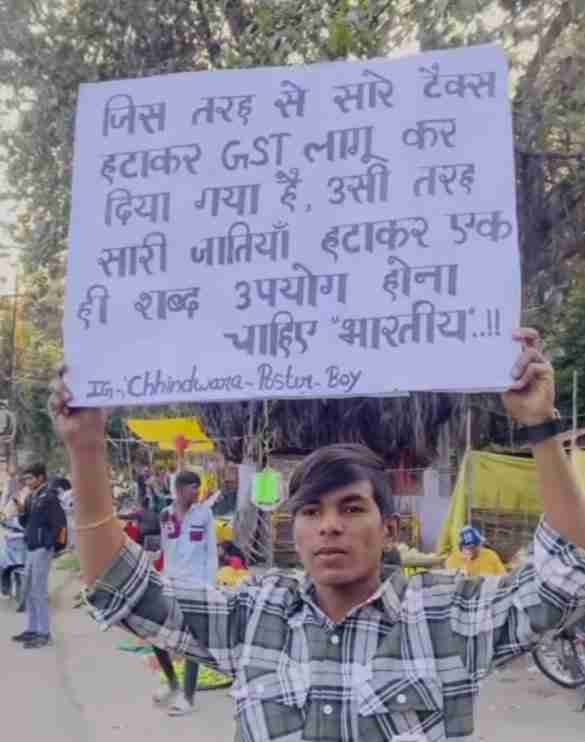 जिस तरह से सारे टैक्स
हटाकर GST लागू कर
दिया गया है, उसी तरह
सारी जातियाँ हटाकर एक
ही शब्द उपयोग होना
चाहिए "भारतीय"..!!
IG-'Chhindwara-Postur-Boy